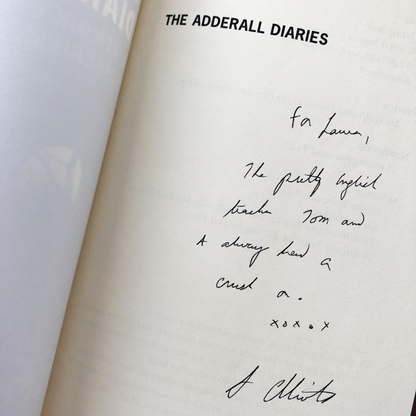 THE ADDERALL DIARIES
For Laura,
The pretty english
teacher Tom and
I always had a
crush on.
xoxox
S Elliott